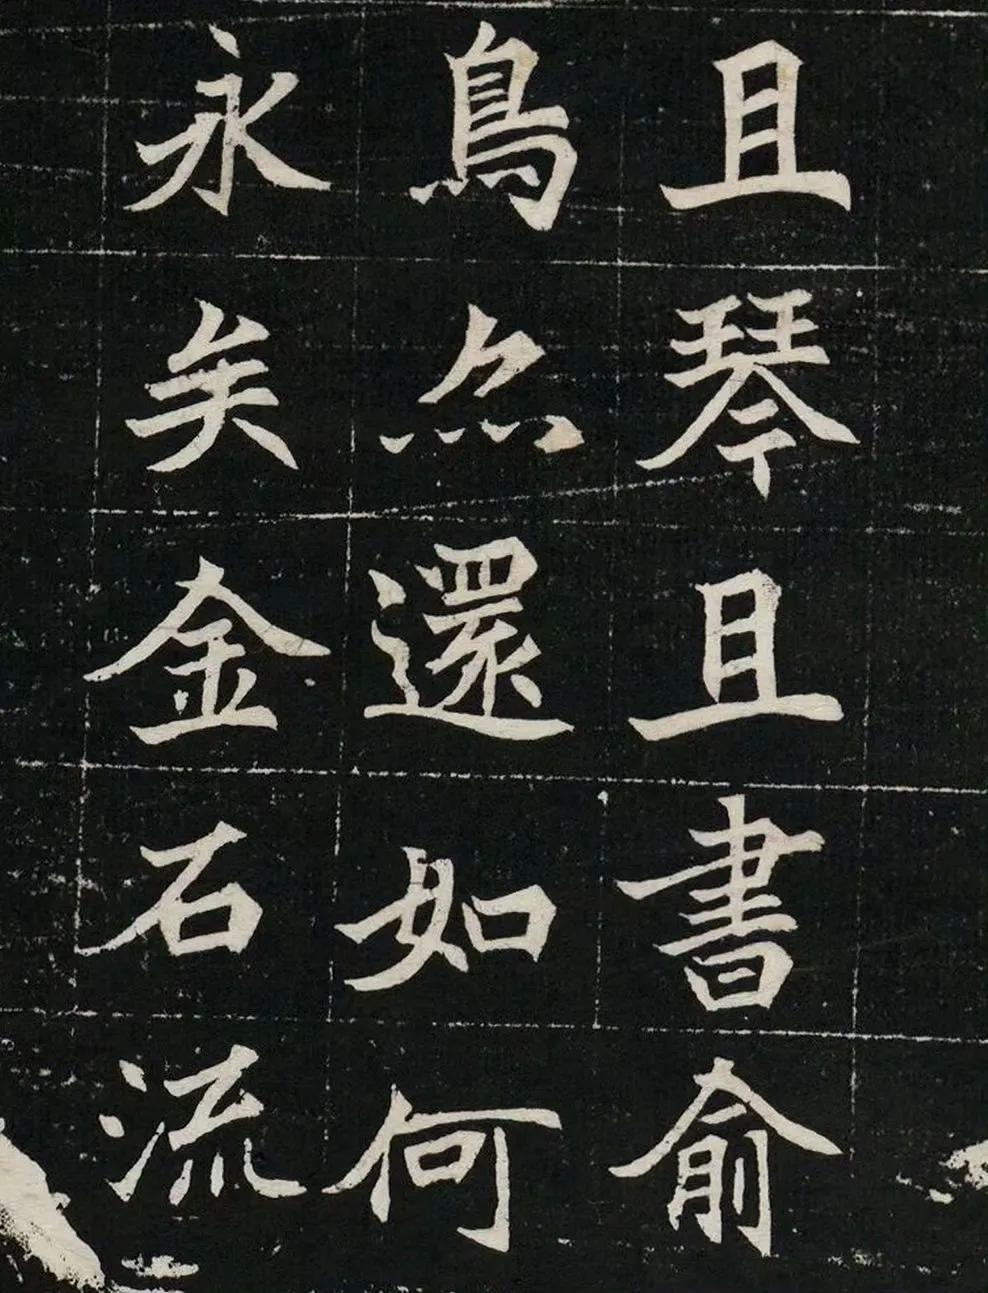 且琴且書俞
鳥還如何
永矣金石流